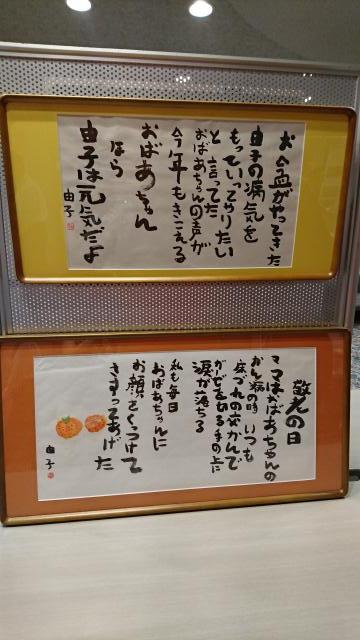 お盆がやってきた
由子の病気を
もっていってやりたい
と言ってた
おばあちゃんの声が
今年もきこえる
おばあちゃん
ほら
由子は元気だよ
由子
敬老の日
ママはおばあちゃんの
かん病の時いつも
床づれの穴かんで
ガーゼをあるまの上に
涙が落ちる
私も毎日
おばあちゃんに
お顔をくっつけて
さすってあげた
由子